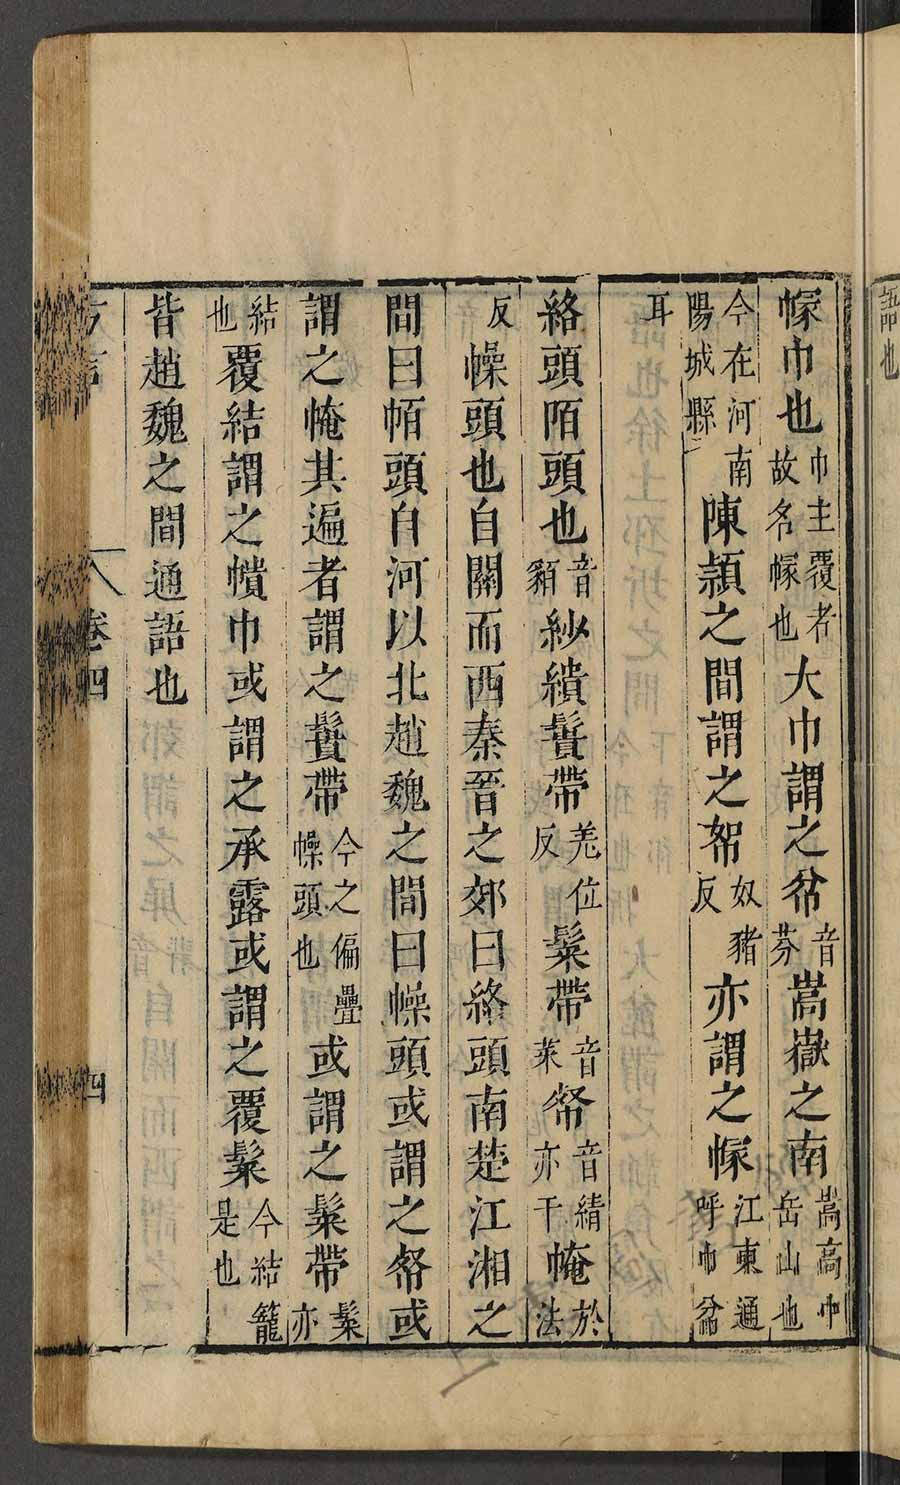 語也
幏巾也巾主覆者故名幏也大巾謂之㡊音芬嵩嶽之南嵩高中岳山也
今在河南陽城縣陳潁之間謂之帤奴豬反亦謂之幏江東通呼巾㡊
耳
絡頭陌頭也音貊紗繢䰎帶羌位反䰂帶音菜音綪亦千㡋於法
反幧頭也自關而西秦晉之郊曰絡頭南楚江湘之
間曰帞頭自河以北趙魏之間曰幧頭或謂之帤或
謂之㡋其遍者謂之䰎帶今之偏疊幧頭也或謂之䰂帶䰂亦
結也覆結謂之幘巾或謂之承露或謂之覆䰂今結籠是也
皆趙魏之間通語也
方言
卷四
四